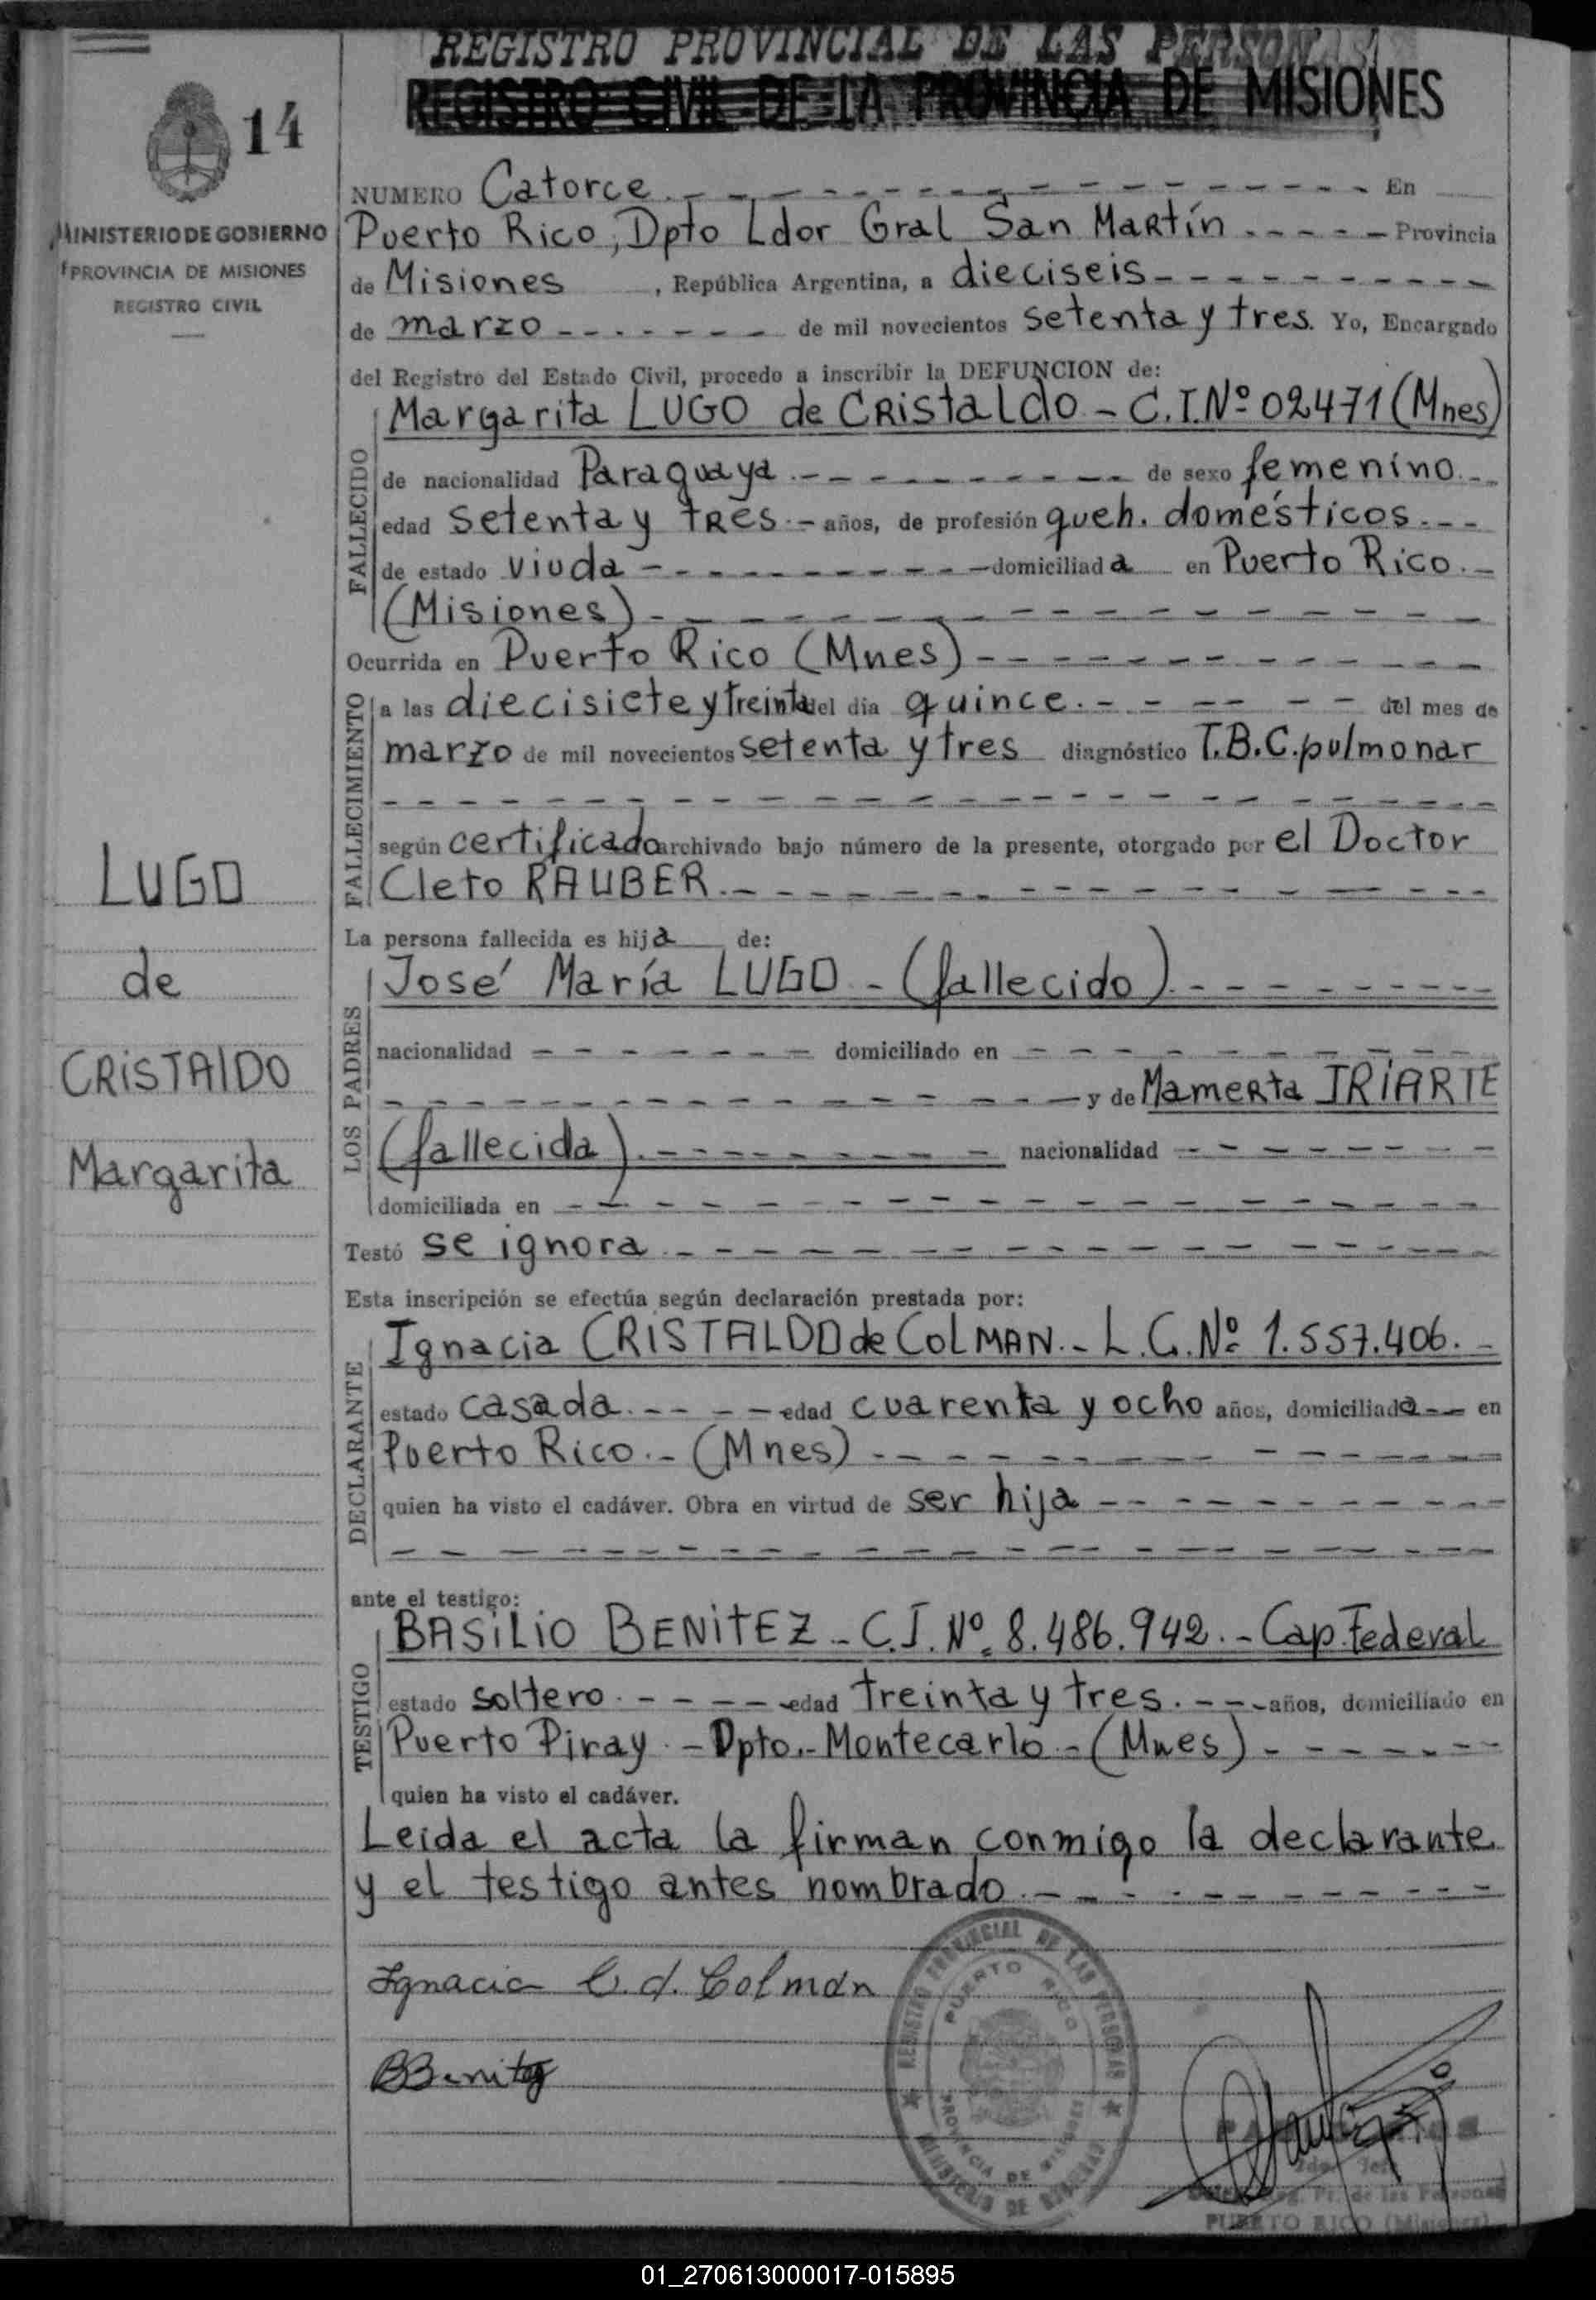 REGISTRO PROVINCIAL DE LAS PERSONAS
REGISTRO CIVIL DE LA PROVINCIA DE MISIONES
14
MINISTERIO DE GOBIERNO
PROVINCIA DE MISIONES
REGISTRO CIVIL
NUMERO Catorce. En
Puerto Rico, Dpto Ldor Gral San Martín Provincia
de Misiones, República Argentina, a dieciseis
de marzo de mil novecientos setenta y tres. Yo, Encargado
del Registro del Estado Civil, procedo a inscribir la DEFUNCION de:
FALLECIDO
Margarita LUGO de CRistaldo - C.I.Nº 02471 (Mnes)
de nacionalidad Paraguaya de sexo femenino.
edad setenta y tres. años, de profesión queh. domésticos.
de estado viuda domiciliada en Puerto Rico.
(Misiones)
Ocurrida en Puerto Rico (Mnes)
FALLECIMIENTO
a las diecisiete y treinta del día quince. del mes de
marzo de mil novecientos setenta y tres diagnóstico T.B.C. pulmonar
según certificado archivado bajo número de la presente, otorgado por el Doctor
Cleto RAUBER.
La persona fallecida es hija de:
LOS PADRES
José María LUGO - (fallecido)
nacionalidad domiciliado en
y de MameRta IRIARTE
(fallecida). nacionalidad
domiciliada en
Testó se ignora.
Esta inscripción se efectúa según declaración prestada por:
DECLARANTE
Ignacia CRISTALDO de COLMAN.- L.C.Nº 1.557.406.-
estado casada. edad cuarenta y ocho años, domiciliada en
Puerto Rico.- (Mnes)
quien ha visto el cadáver. Obra en virtud de ser hija
ante el testigo:
TESTIGO
BASILIO BENITEZ - C.I.Nº. 8.486.942.- Cap. Federal
estado soltero. edad treinta y tres. años, domiciliado en
Puerto Piray.- Dpto.- Montecarlo - (Mnes)
quien ha visto el cadáver.
Leída el acta la firman conmigo la declarante
y el testigo antes nombrado.
Ignacia C. d. Colmán
BBenitez
REGISTRO PROVINCIAL DE LAS PERSONAS
PUERTO RICO
PROVINCIA DE MISIONES
MINISTERIO DE GOBIERNO
PUERTO RICO (Misiones)
LUGO
de
CRISTALDO
Margarita
01_270613000017-015895